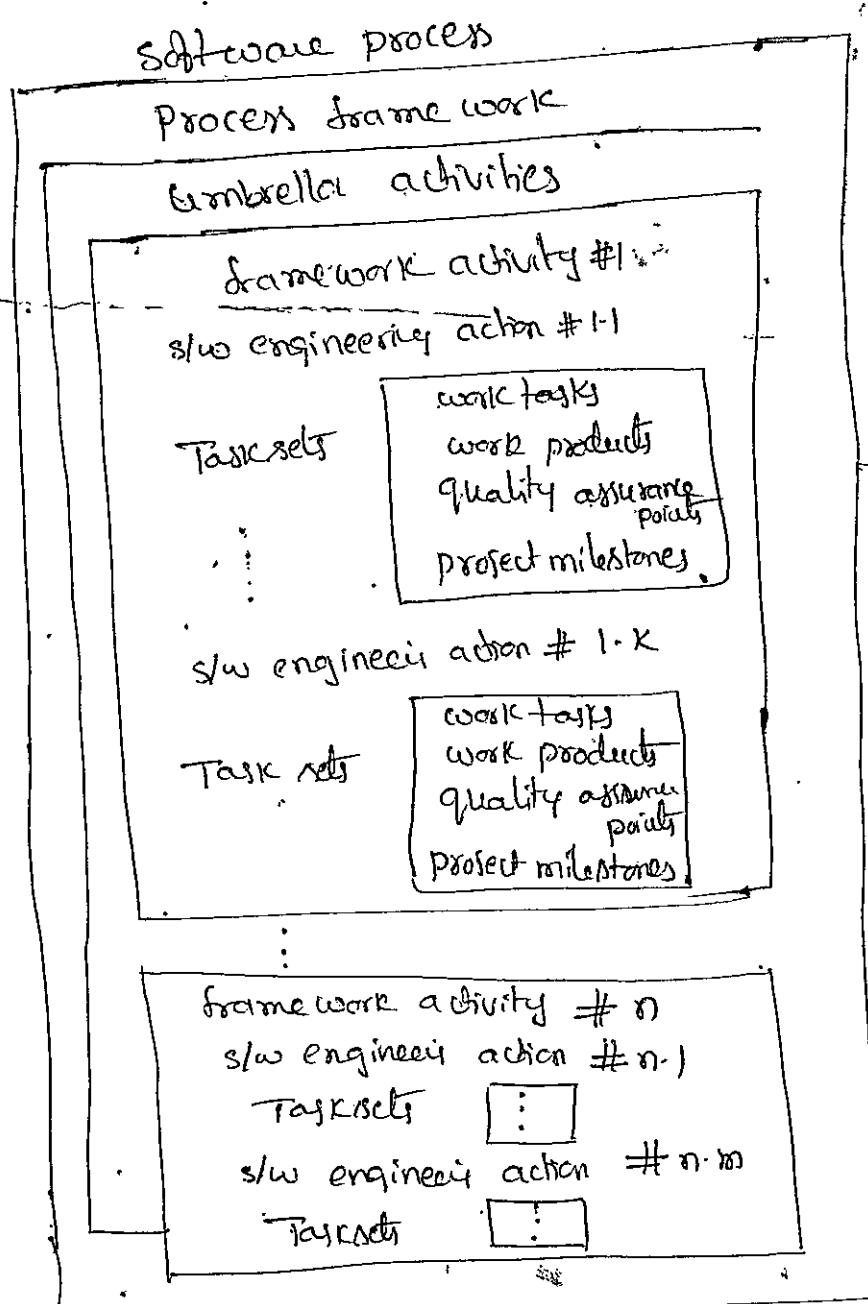 Software process
Process frame work
Umbrella activities
framework activity #1
s/w engineering action # 1.1
Task sets
work tasks
work products
quality assurance
points
project milestones
s/w engineeri action # 1.k
Task sets
work tasks
work products
quality assurance
points
project milestones
frame work activity # n
s/w engineeri action # n.1
Task sets
s/w engineeri action # n.m
Task sets